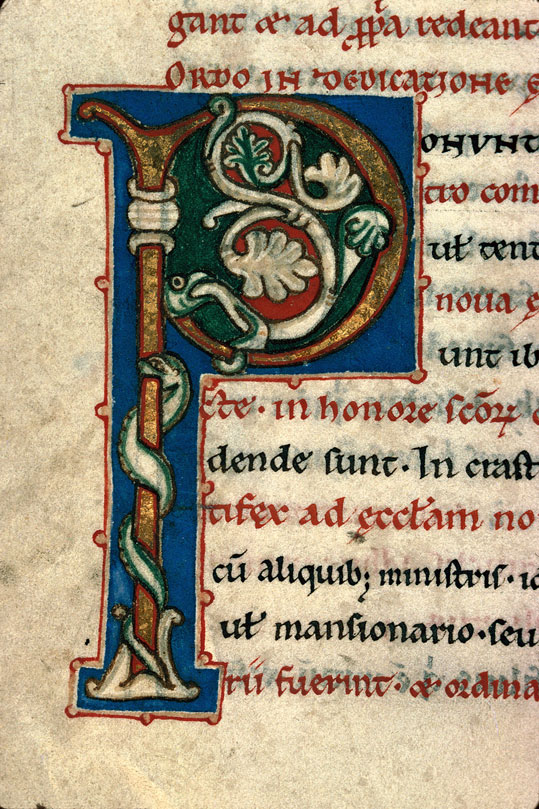 gant & ad ꝓp̄a redeant
ORDO IN DEDICATIONE E
PONUNT
tro com
ut̄ tent
noua e
unt ib
Este · in honore scōꝝ
dende sunt · In crast
tifex ad ęccl̄am no
cū aliquib; ministris · id
ut̄ mansionario · seu
rii fuerint · & ordina